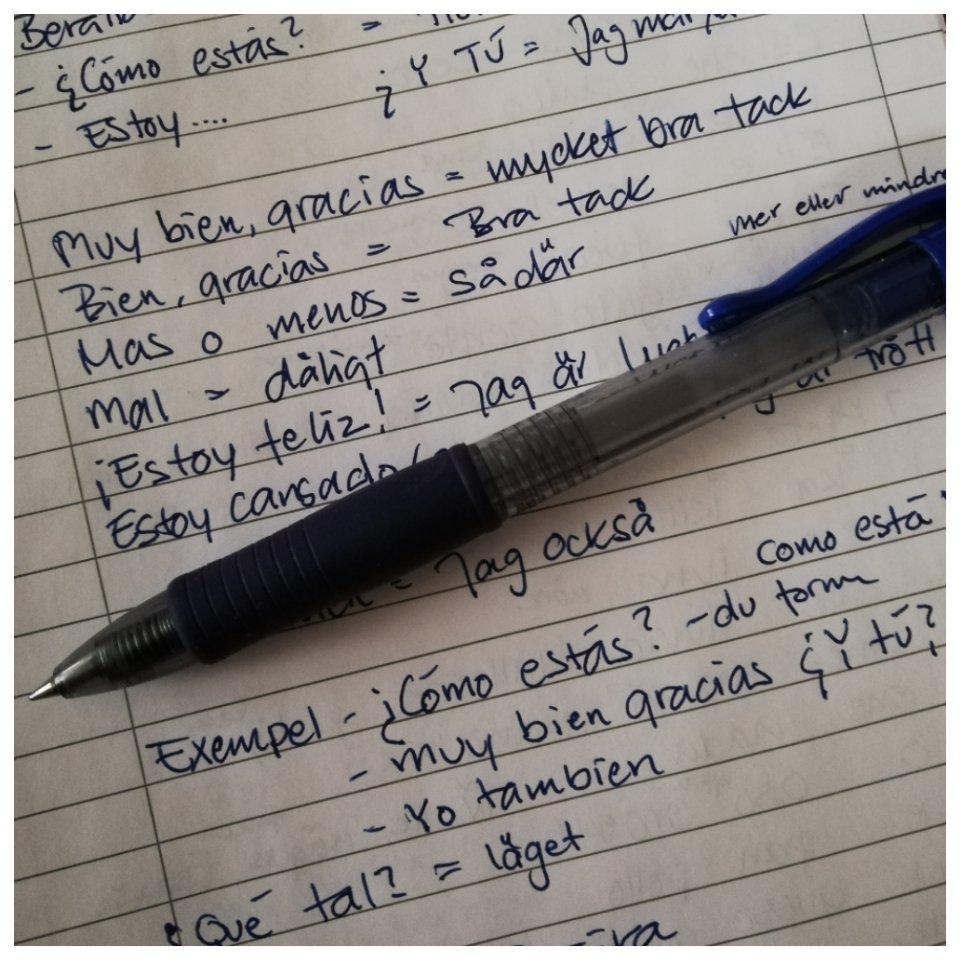 - ¿Cómo estás? =
- Estoy.... ¿Y TÚ = Jag
Muy bien, gracias = mycket bra tack
Bien, gracias = Bra tack
mer eller mindre
Mas o menos = sådär
Mal = dåligt
¡Estoy feliz! = Jag är
Estoy cansado är trött
= Jag också
como está
Exempel - ¿Cómo estás? - du form
- Muy bien gracias ¿Y tú?
- Yo tambien
¿Qué tal? = läget